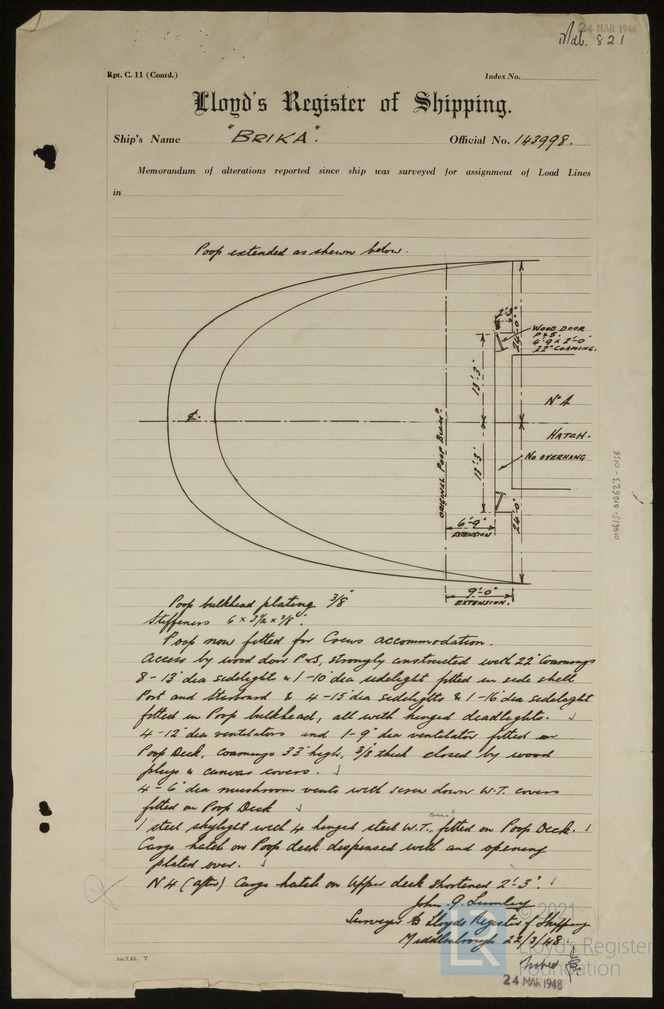 24 MAR 1948
Mdb. 821
Rpt. C. 11 (Contd.)
Index No.
Lloyd's Register of Shipping.
Ship's Name "BRIKA".
Official No. 143998.
Memorandum of alterations reported since ship was surveyed for assignment of Load Lines
in
Poop extended as shewn below.
2'-3"
24'-0"
WOOD DOOR
P & S.
4'-9 x 2'-0"
22" COAMING.
13'-3"
No 4
HATCH.
℄.
NO OVERHANG
13'-3"
ORIGINAL POOP BULKD
24'-0"
6'-9"
EXTENSION
9'-0"
EXTENSION.
Poop bulkhead plating 3/8"
Stiffeners 6 x 3½ x 3/8".
Poop now fitted for Crews accommodation.
Access by wood door P & S, strongly constructed with 22" Coamings
8 - 13" dia sidelights & 1 - 10" dia sidelight fitted in side shell
Port and Starboard & 4 - 15" dia sidelights & 1 - 16" dia sidelight
fitted in Poop bulkhead, all with hinged deadlights.
4 - 12" dia ventilators and 1 - 9" dia ventilator fitted on
Poop Deck, coamings 33" high, 3/8 thick closed by wood
plugs & canvas covers.
4 - 6" dia mushroom vents with screw down W.T. covers
fitted on Poop Deck
1 steel skylight with 4 hinged steel W.T. fitted on Poop Deck.
Cargo hatch on Poop deck dispensed with and opening
plated over.
No 4 (after) Cargo hatch on Upper deck shortened 2'-3".
John G. Lumley
Surveyor to Lloyds Register of Shipping
Middlesbrough 22/3/48.
Noted
24 MAR 1948
5m.7,42. T.
© 2021
LR
Lloyd's Register
Foundation